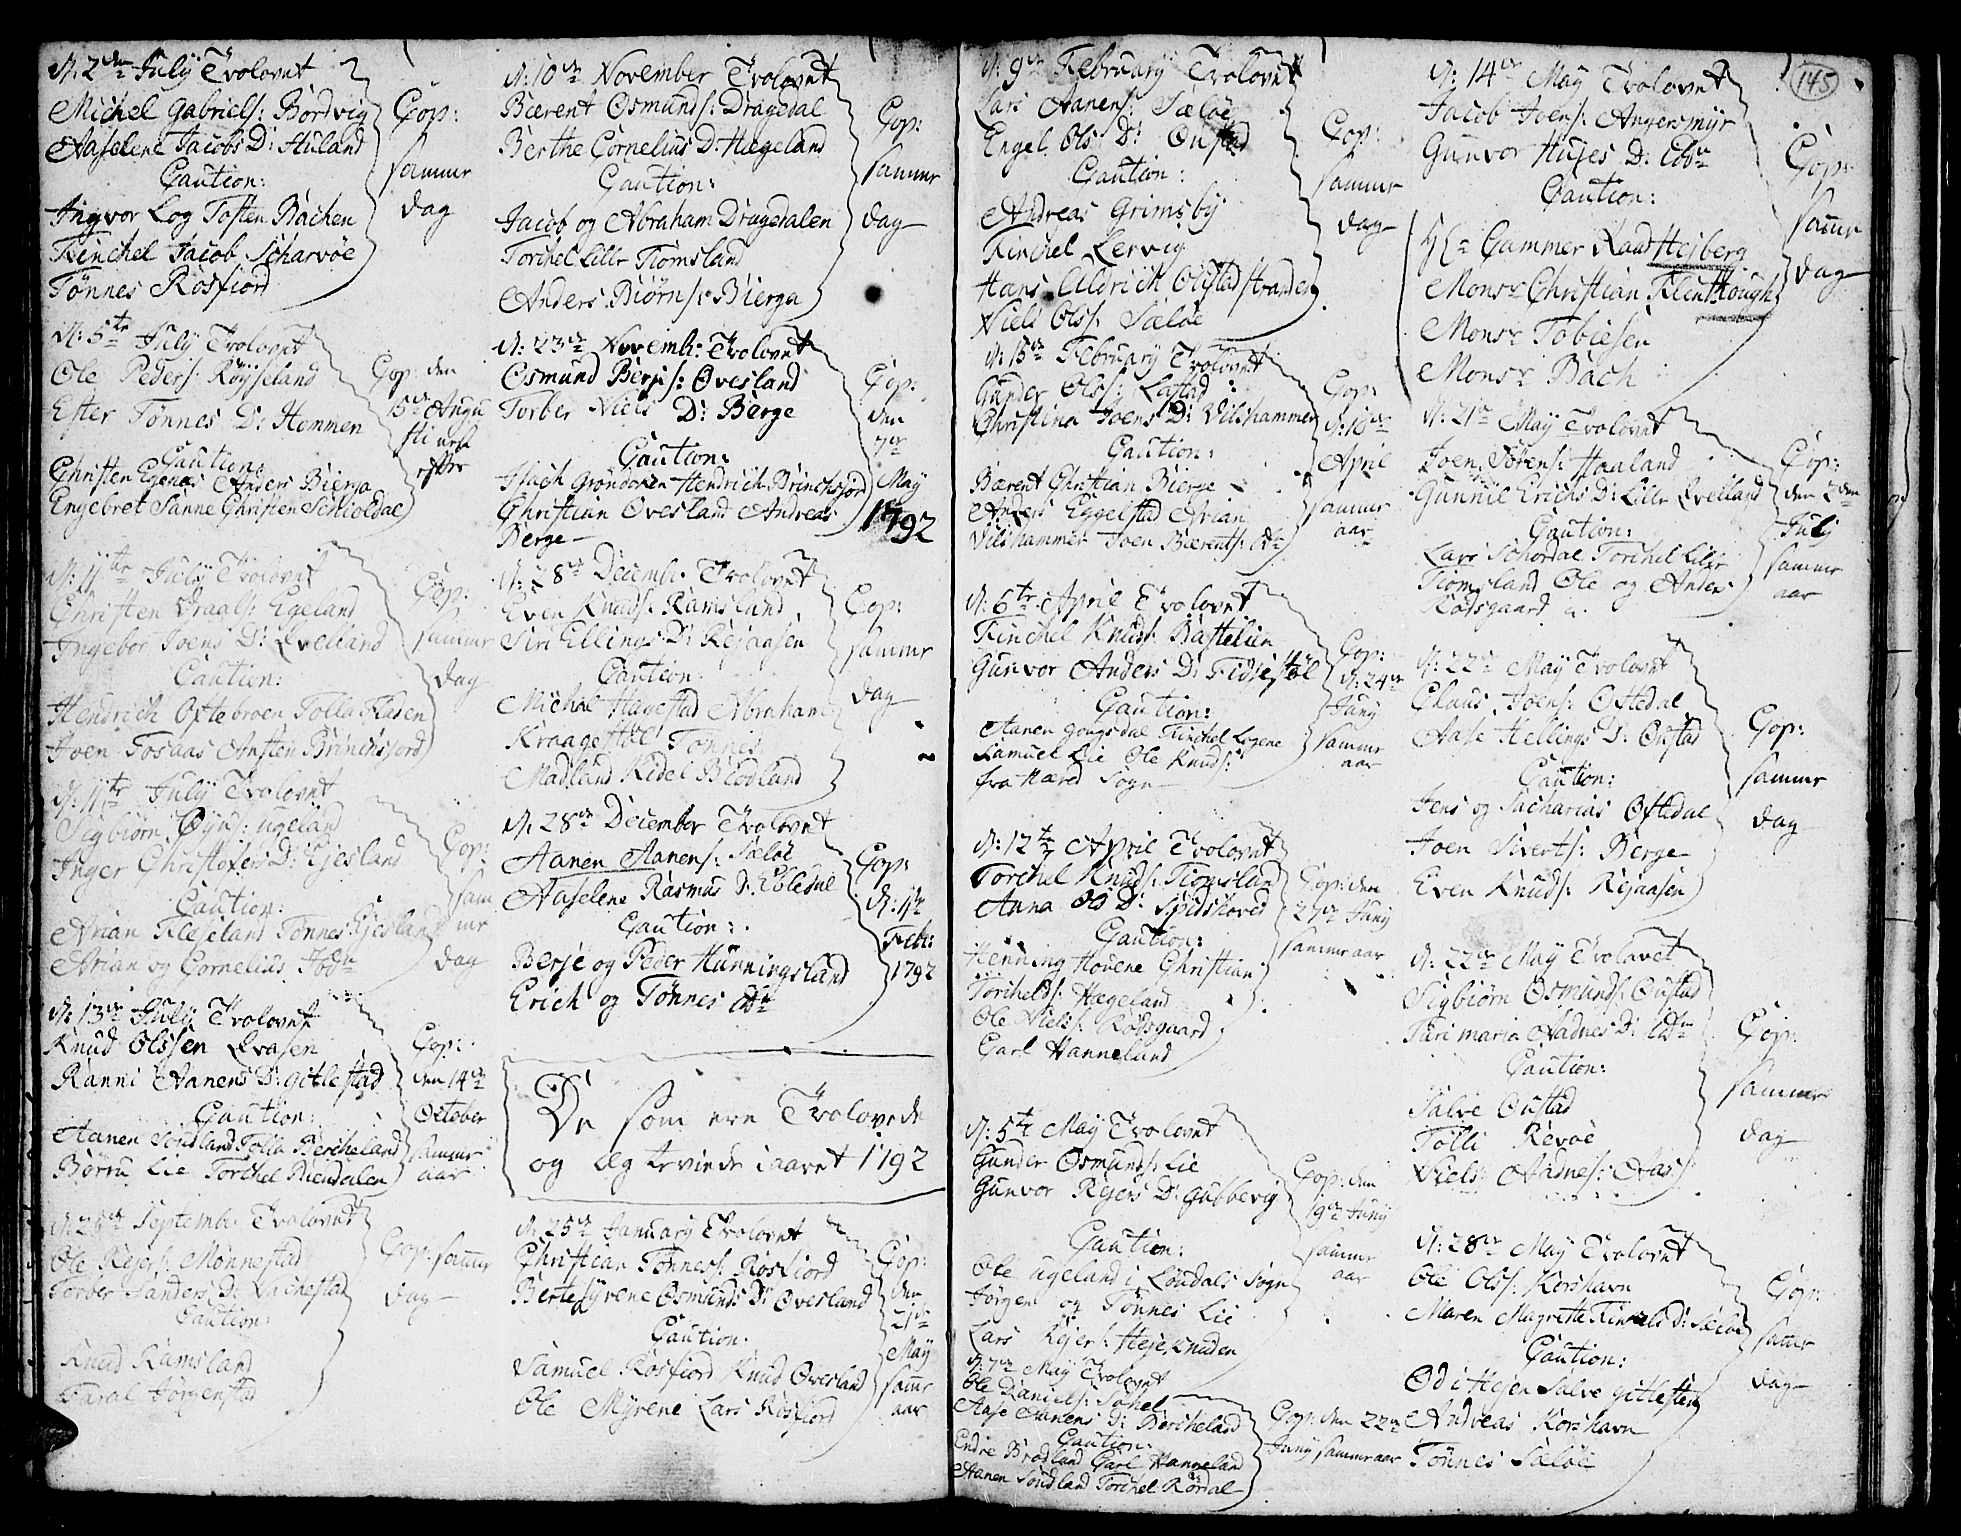 d: 2den July Trolovet
Michel Gabriels: Bordvig
Aaselene Jacobs D: Huland
Caution:
Ingvor Log Tosten Bachen
Kinchel Jacob Scharvøe
Tønnes Rosfiord
Cop:
samme
dag
d: 5te July Trolovet
Ole Peders: Røyseland
Ester Tønnes D: Hommen
Caution:
Christen Egenes Anders Bierga
Engebret Sanne Christen Schioldal
Cop: den
15de Augu
sti
efter
d: 11te July Trolovet
Christen Egeland
Ingebor Joens D: Qvelland
Caution:
Hendrich Oftebroen Tolla Flasen
Joen Fosaas Ansten Brinchsjord
Cop:
samme
dag
d: 11te July Trolovet
Sigbiørn ugeland
Inger Christofers D: Ejesland
Caution:
Arian Flejeland Tønnes Ejesland
Arian og Cornelius Ibdm
Cop:
sam
me
dag
d: 13de July Trolovet
Knud Olssen Qvasen
Ranni Aanens D: gitlestad
Caution:
Aanen Soudland Tolla Bercheland
Børru Lie Torchel Riendalen
Cop:
den 14de
October
samme
aar
d: 25de Septemb: Trolovet
Ole Rejers: Monnestad
Torber Sanders D: Vachestad
Caution:
Knud Ramsland
Taral Jørgenstad
Cop: samme
dag
d: 10de November Trolovet
Bærent Osmunds: Dragedal
Berthe Cornelius D: Hægeland
Caution:
Jacob og Abraham Dragedalen
Torchel Lille Tiomsland
Anders Biørns: Bierga
Cop:
samme
dag
d: 23de Novemb: Trolovet
Osmund Berjes: Øvesland
Torber Niels D: Berge
Caution:
Huch Grøndoken Hendrich Brinchsjord
Christian Øvesland Andreas
Berge
Cop:
den
7de
May
1792
d: 28de Decemb: Trolovet
Even Knuds: Ramsland
Siri Ellings D: Rejaasen
Caution
Michal Hagestad Abraham
Kraagestøl Tønnes
Madland Kidel Blodland
Cop:
samme
dag
d: 28de December Trolovet
Aanen Aanens: Sæløe
Aaselene Rasmus D: Ebledal
Caution:
Berje og Peder Hunningsland
Erich og Tønnes Ibdm
Cop:
d: 11te
Feb:
1792
De som ere Trolovede
og ægteviede i aaret 1792
d: 25de January Trolovet
Christian Tønness: Rosfiord
Bertesyrene Osmunds D: Øvesland
Caution:
Samuel Rosfiord Knud Øvesland
Ole Myrene Lars Rosfiord
Cop:
den
21de
May
samme
aar
d: 9de February Trolovet
Lars Aanens: Sæløe
Engel Ols D: Oustad
Caution:
Andreas Grimsby
Kinchel Lervig
Hans Uldrich Olstadstranden
Niels Ols: Sæløe
Cop:
samme
dag
d: 15de February Trolovet
Gunder Ols: Lastad
Christina Joens D: Vilshammer
Caution:
Bærent Christian Bierge
Anders Eggelstad Arian
Vilshammer Joen Bærents: Ibdm
Cop:
d: 10de
April
samme
aar
d: 6te April Trolovet
Kinchel Knuds: Bastelien
Gunvor Anders D: Fidjestøl
Caution:
Aanen gougsdal Kinchel Logene
Samuel Lie Ole Knuds:
fra Hæred Sogn
Cop:
d: 24de
Juny
samme
aar
d: 12te April Trolovet
Torchel Knuds: Tiomsland
Anna Ols D: Spidshoved
Caution:
Henning Houene Christian
Torchelds: Hægeland
Ole Niels: Rødsgaard
Carl Hanneland
Cop: den
27de Juny
samme aar
d: 5te May Trolovet
Gunder Osmunds: Lie
Gunvor Rejers D: Gubbevig
Caution:
Ole ugeland i Loudals Sogn
Jørgen og Tønnes Lie
Lars Rejers: Hejeknuden
Cop: den
19de Juny
samme
aar
d: 7de May Trolovet
Ole Daniels: Sahel
Aase Aanens D: Bercheland
Caution:
Endre Brødland Carl Hanneland
Aanen Soudland Torchel Rørdal
Cop: den 22de
Juny samme aar
145
d: 14de May Trolovet
Jacob Joens: Angersmyr
Gunvor Hujes D: Ibdm
Caution:
Hr Cammer Raad Hejberg
Monsr Christian Flenthough
Monsr Tobiesen
Monsr Bach
Cop:
samme
dag
d: 21de May Trolovet
Joen Sørens: Haaland
Gunnil Erichs D: Lille Qvelland
Caution:
Lars Schordal Torchel Lille
Tiomsland Ole og Anders
Rødsgaard
Cop:
den 2den
July
samme
aar
d: 22de May Trolovet
Claus Joens: Oftedal
Aase Hellings D: Oustad
Caution:
Jens og Sacharias Oftedal
Joen Siverts: Berge
Even Knuds: Rejaasen
Cop:
samme
dag
d: 22de May Trolovet
Sigbiørn Osmunds: Oustad
Turi maria Aadnes D: Ibdm
Caution:
Salve Oustad
Tolli Revøe
Niels Aadnes: Aas
Cop:
samme
dag
d: 28de May Trolovet
Ole Ols: Korshavn
Maren Magrethe Kinchels D: Sæløe
Caution:
Od i Hejen Salve gitlesten
Andreas Korshavn
Tønnes Sæløe
Cop:
samme
dag